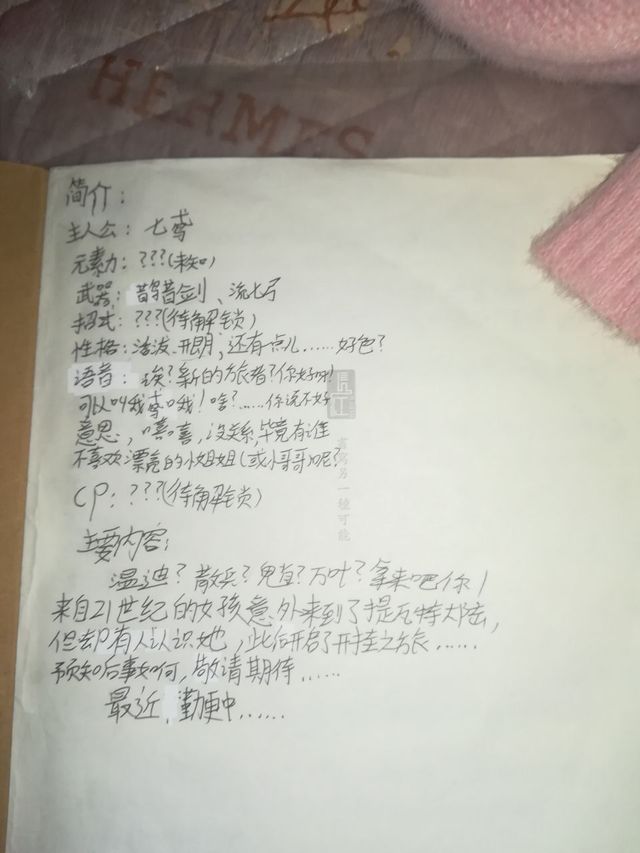 HERMES
简介：
主人公：七鸢
元素力：???(未知)
武器：鹊昔剑、流七弓
招式：???(待解锁)
性格：活泼开朗，还有点儿……好色？
语音：诶？新的旅者？你好呀！
可以叫我鸢哦！啥？……你说不好
意思，嘻嘻，没关系毕竟有谁
不喜欢漂亮的小姐姐(或小哥哥)呢？
CP：???(待解锁)
主要内容：
温迪？散兵？魈？万叶？拿来吧你！
来自21世纪的女孩意外来到了提瓦特大陆，
但却有人认识她，此后开启了开挂之旅……
预知后事如何，敬请期待……
最近，勤更中……
写另一种可能